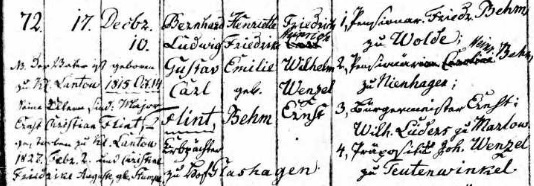 72. 17. Decbr. Bernhard Henriette Friedrich 1, Pensionär Friedr. Behm
10. Ludwig Friedrike Heinrich zu Wolde;
NB. Der Vater ist geboren Gustav Emilie Wilhelm 2, Pensionär Behm
zu Kl. Lantow 1815 Oct. 14 Carl geb. Wenzel zu Nienhagen;
Seine Eltern sind: Major Flint, Behm Ernst 3, Bürgermeister Ernst
Ernst Christian Flint, Erbpächter Wilh. Lüders zu Marlow
gestorben zu Kl. Lantow zu Hof Glashagen 4, Präpositus Joh. Wenzel
1822. Febr. 2. und Christine zu Teutenwinkel
Friedrike Auguste, geb.